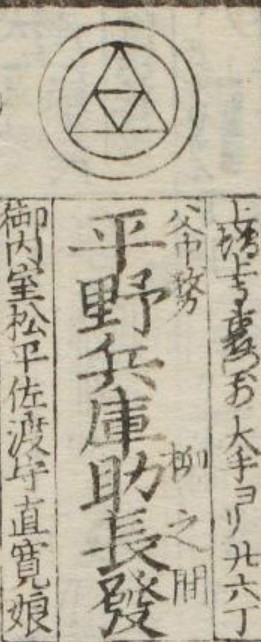 上 大手ヨリ廿六丁
父帝 柳之間
平野兵庫助長發
御内室松平佐渡守直寛娘